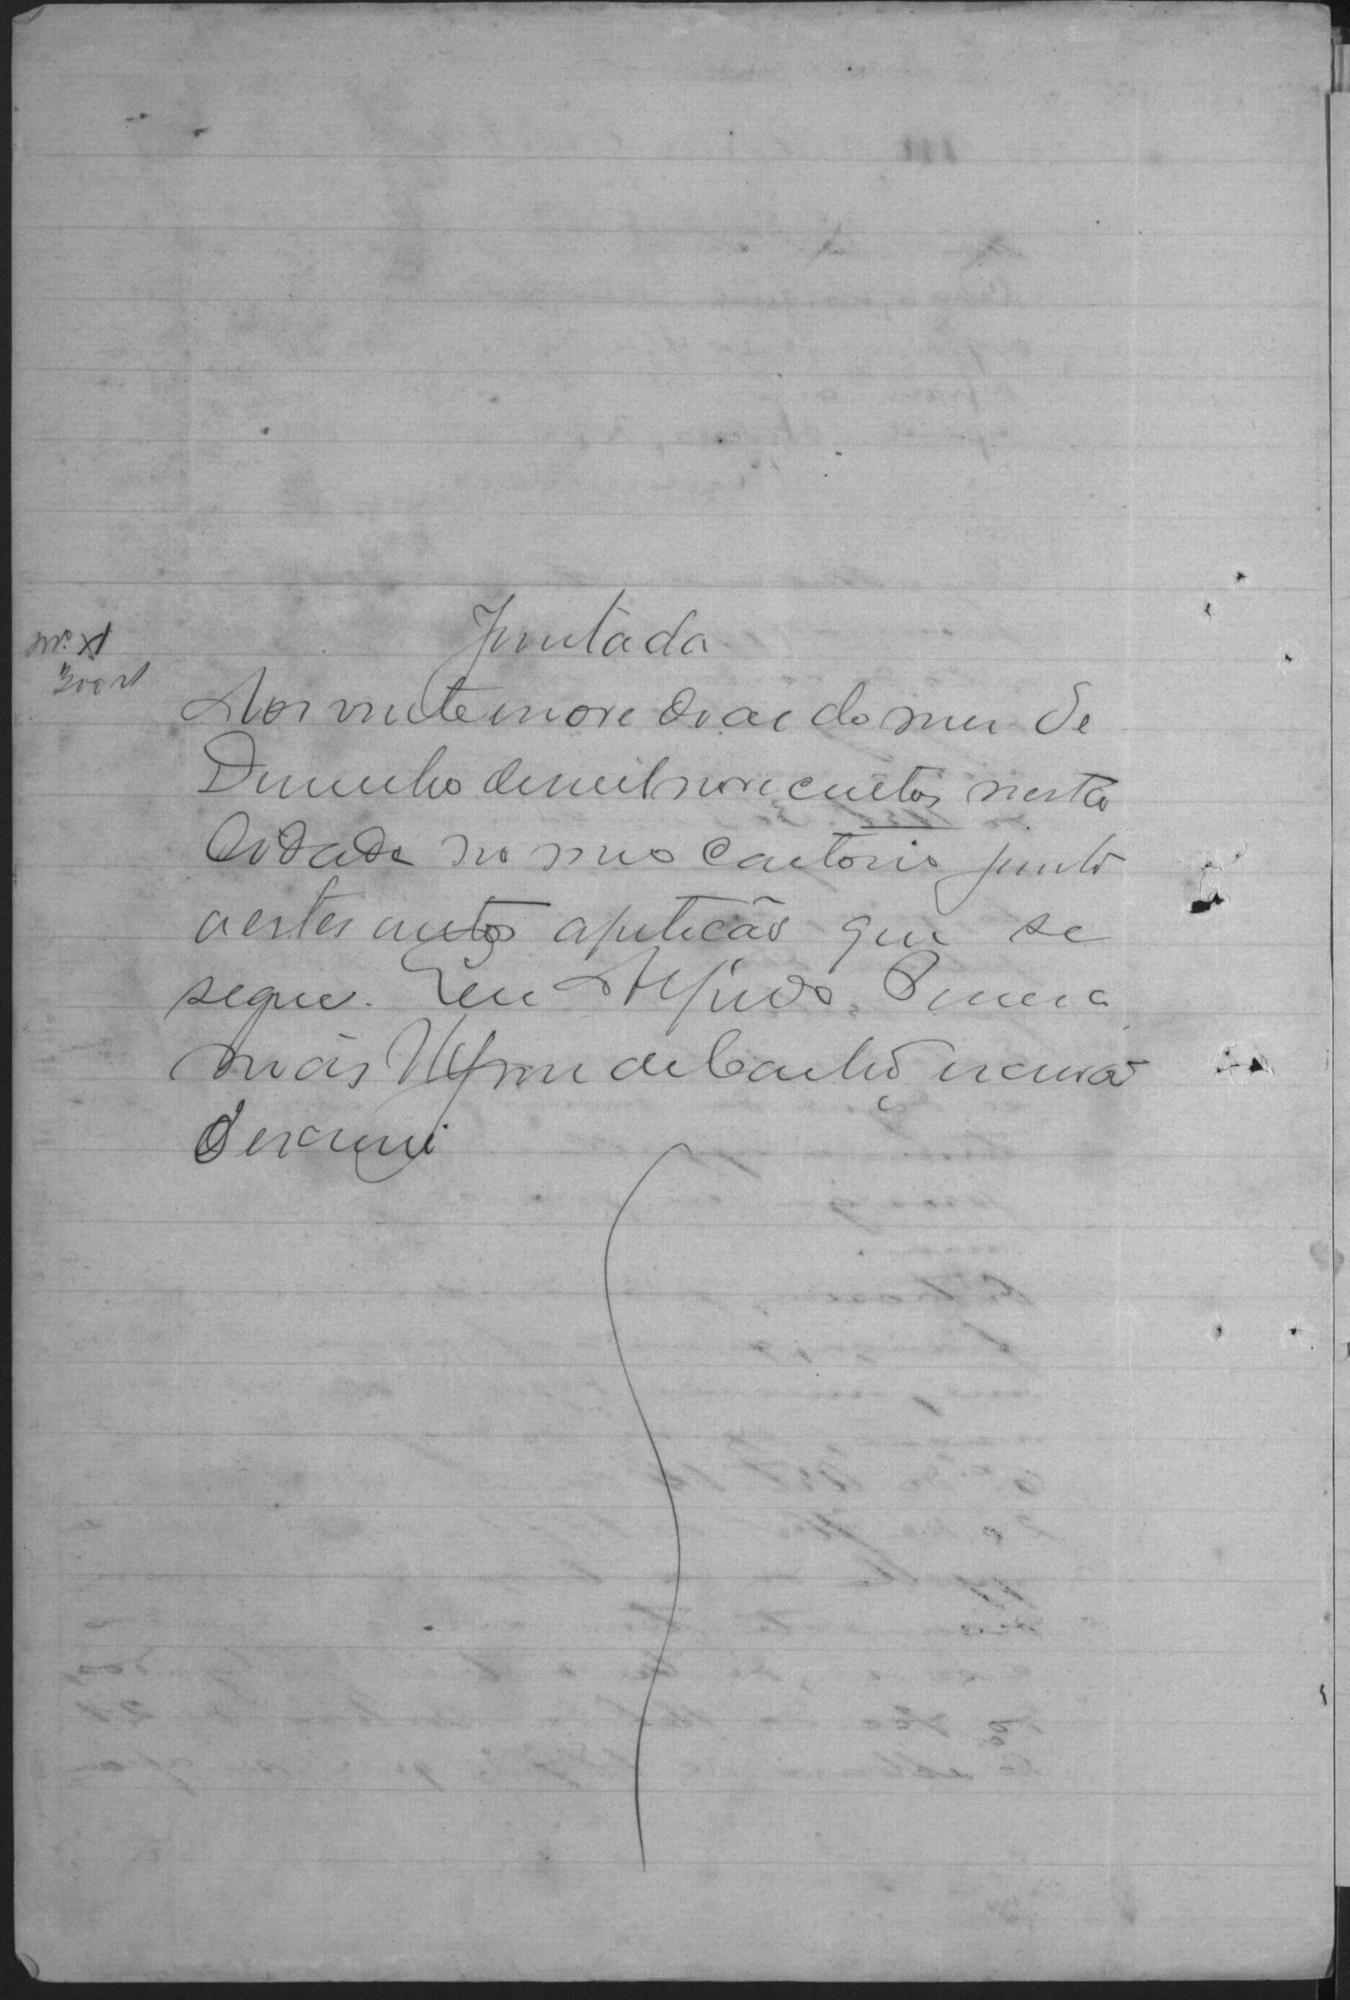 Juntada
Aos vinte nove dias do mes de
Dezembro de mil novecentos nesta
Cidade no meu Cartorio junto
a estes autos a petição que se
segue. Eu Alfredo
escrivão
o escrevi